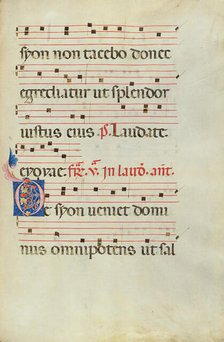 syon non tacebo donec
egrediatur ut splendor
iustus eius. p̅s. Laudate.
euouae. fr̅. v̅. in laud̅. ant̅.
Ec syon ueniet domi
nus omnipotens ut sal